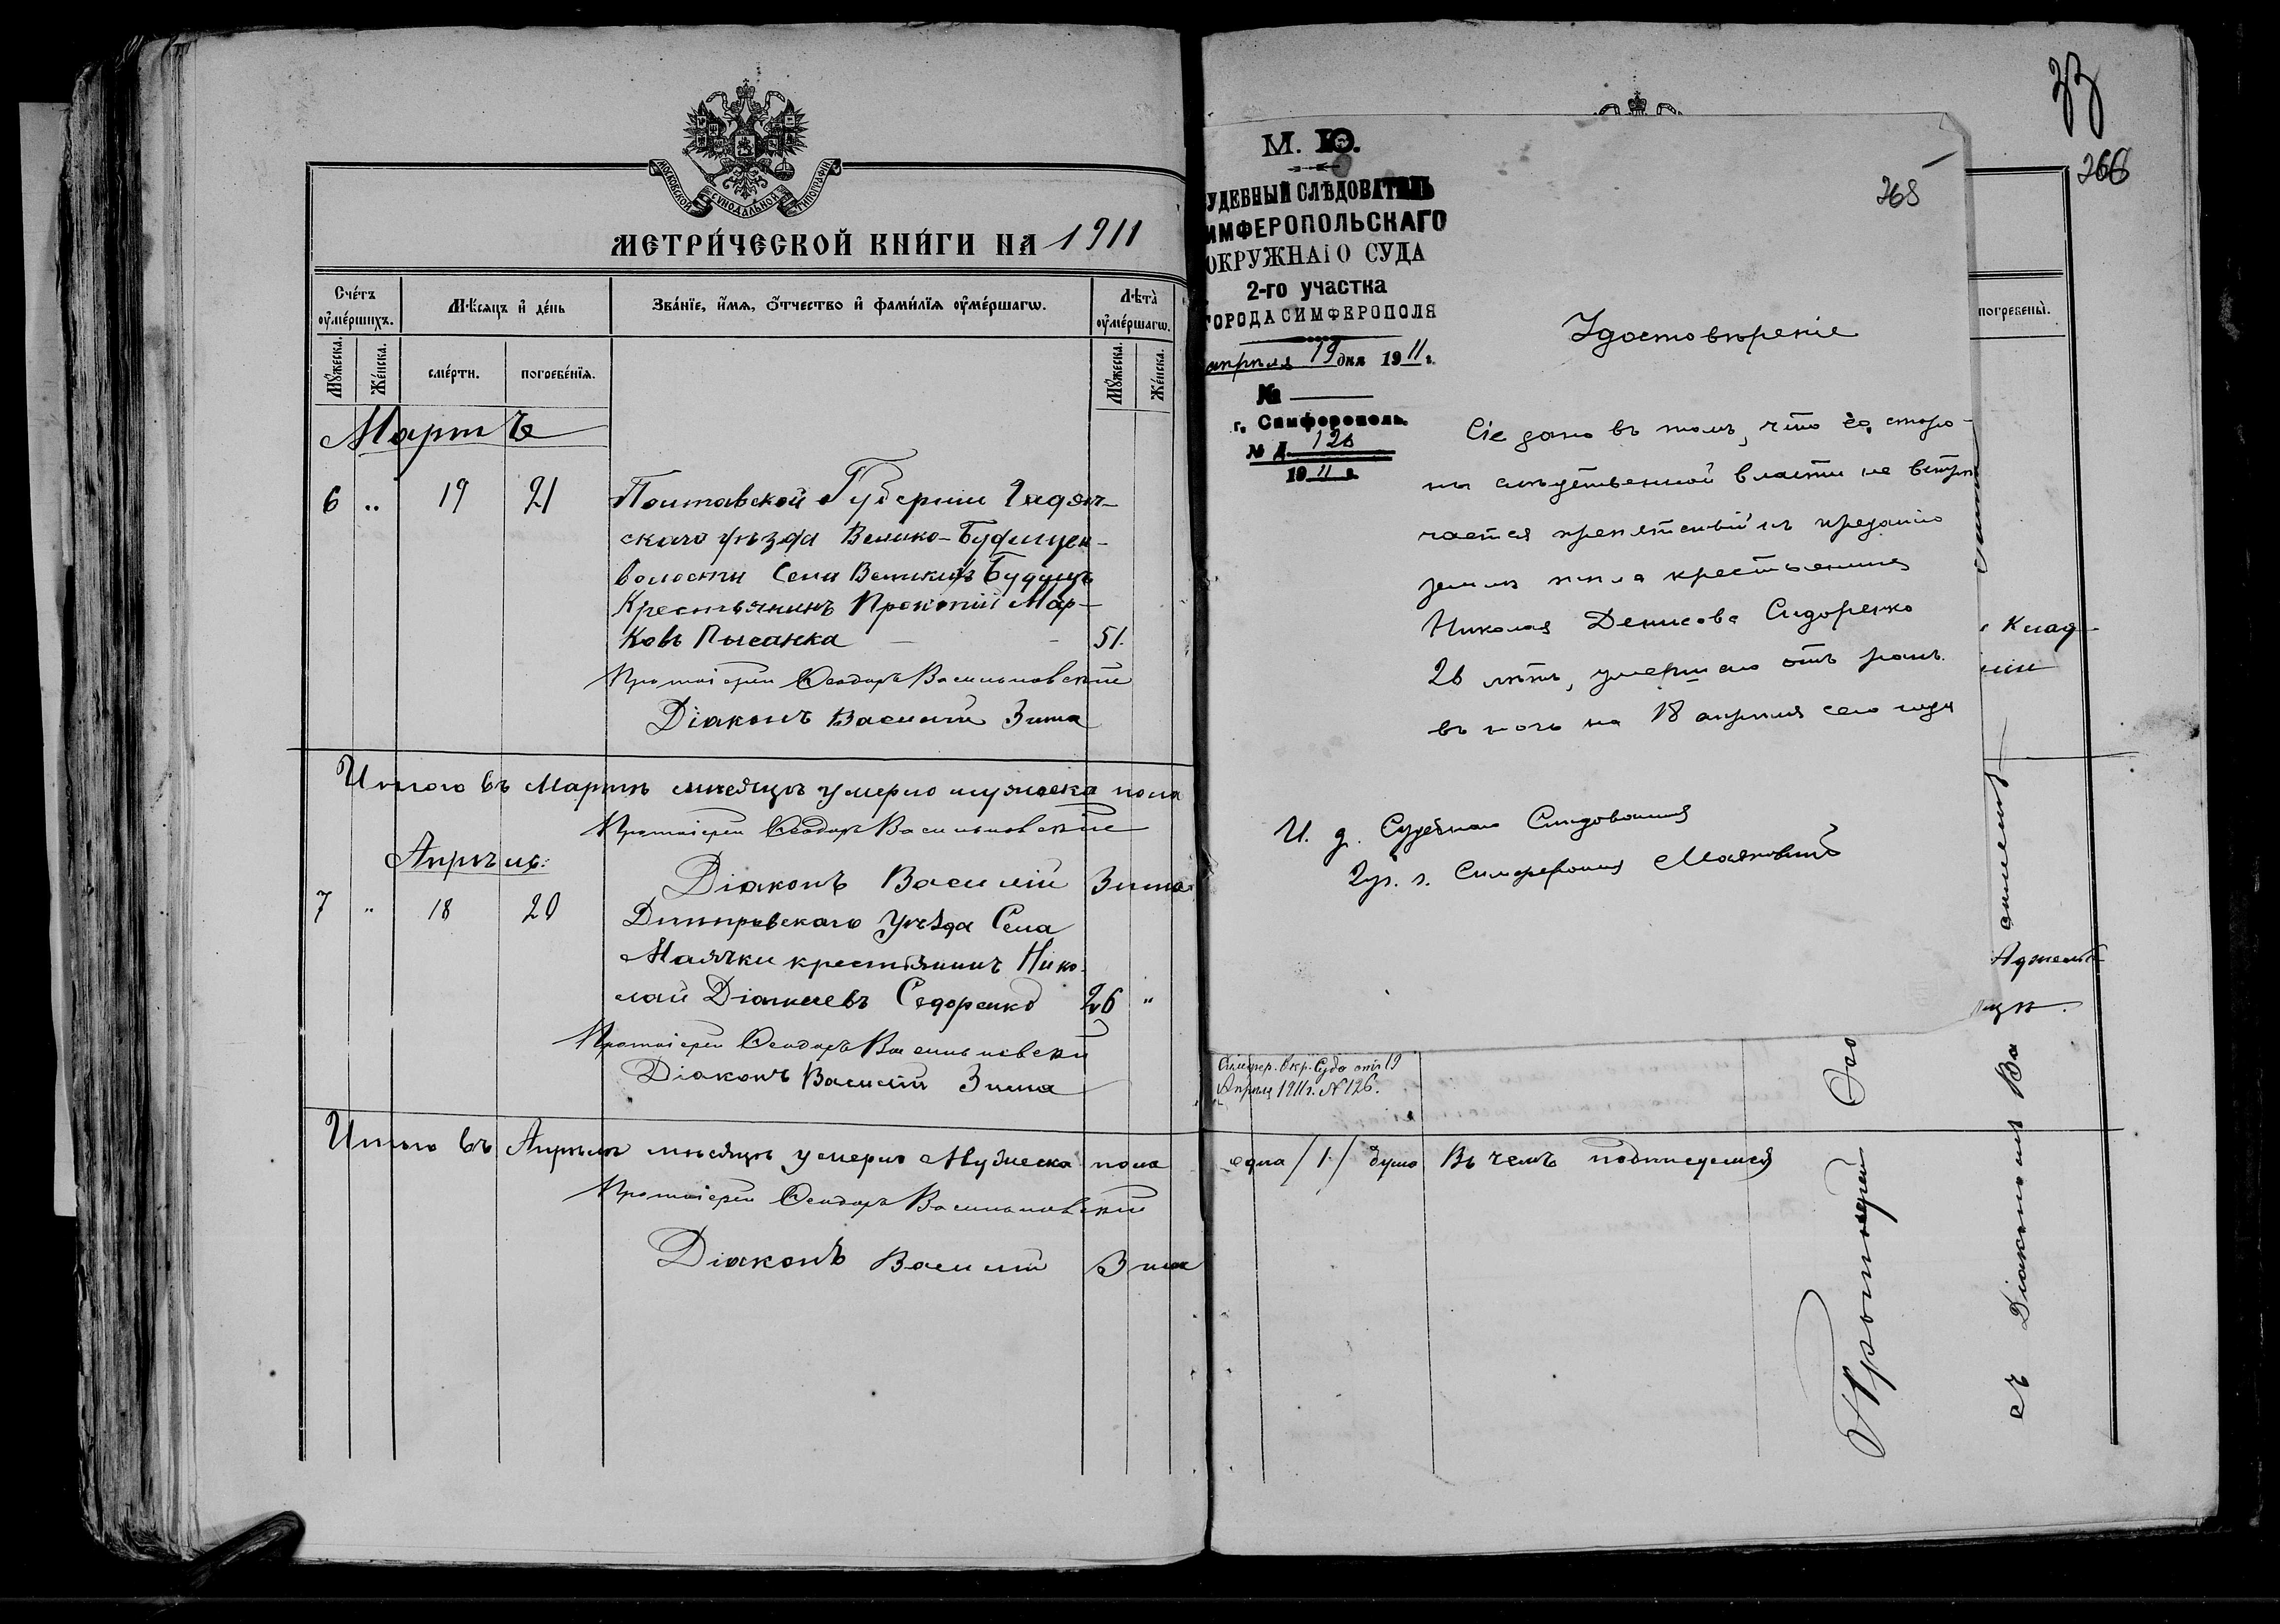 МОСКОВСКОЙ СѴНОДАЛЬНОЙ ТИПОГРАФІИ
МЕТРИ́ЧЕСКОЙ КНИ́ГИ НА 1911
Сче́тъ ᲂу҆ме́ршихъ.
Мѣ́сяцъ и҆ де́нь
Зва́нїе, и҆́мѧ, ѻ҆́тчество и҆ фами́лїѧ ᲂу҆ме́ршагѡ.
Лѣта̀ ᲂу҆ме́ршагѡ.
Мꙋ́жеска.
Же́нска.
сме́рти.
погребе́нїѧ.
Мꙋ́жеска.
Же́нска.
Мартъ
6 „ 19 21 Полтавской Губерніи Гадяч-
скаго уѣзда Велико-Будищен-
волости Села Великихъ Будищъ
Крестьянинъ Прокопій Мар-
ковъ Писанка — — 51.
Протоіерей Ѳеодоръ Васильковскій
Діаконъ Василій Зима
Итого въ Мартѣ мѣсяцѣ умерло мужеска пола
Протоіерей Ѳеодоръ Васильковскій
Апрѣль:
Діаконъ Василій Зима
7 „ 18 20 Днѣпровскаго Уѣзда Села
Маячки крестьянинъ Нико-
лай Діаниевъ Седоренко 26 „
Протоіерей Ѳеодоръ Васильковскій
Діаконъ Василій Зима
Итого въ Апрѣлѣ мѣсяцѣ умерло Мужеска пола
Протоіерей Ѳеодоръ Васильковскій
Діаконъ Василій Зима
М. Ю.
УДЕБНЫЙ СЛѢДОВАТЕЛЬ
ИМФЕРОПОЛЬСКАГО
ОКРУЖНАГО СУДА
2-го участка
ГОРОДА СИМФЕРОПОЛЯ
апрѣля 19 дня 1911 г.
№ —
г. Симферополь.
№ Д. 126
1911 г.
265
Удостовѣреніе
Сіе дано въ томъ, что со сторо-
ны слѣдственной власти не встрѣ-
чается препятствій къ преданію
землѣ тѣла крестьянина
Николая Денисова Сидоренко
26 лѣтъ, умершаго отъ ранъ
въ ночь на 18 апрѣля сего года
И. д. Судебнаго Слѣдователя
2 уч. г. Симферополя
266
погребены̀.
Клад-
Симфер. Окр. Суда отъ 19
Апрѣля 1911 г. № 126.
одна /1/ душа Въ чемъ подписуемся
Протоіерей
съ Діакономъ Ва